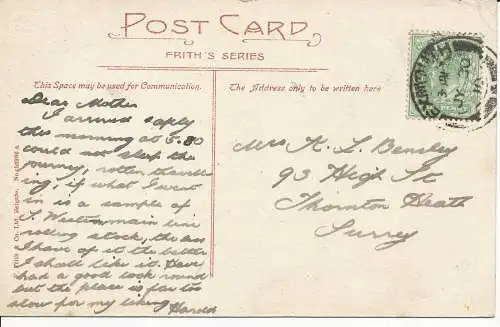 POST CARD
FRITH'S SERIES
This Space may be used for Communication.
The Address only to be written here
Dear Mother
I arrived safely
this morning at 5.30
could not sleep the
journey, rotten travell-
ing, if what I went
in is a sample of
S. Western main line
rolling stock, the less
I have of it the better
I shall like it. Have
had a good look round
but the place is far too
slow for my liking Harold
Mrs K. L. Bensley
93 High St
Thornton Heath
Surrey